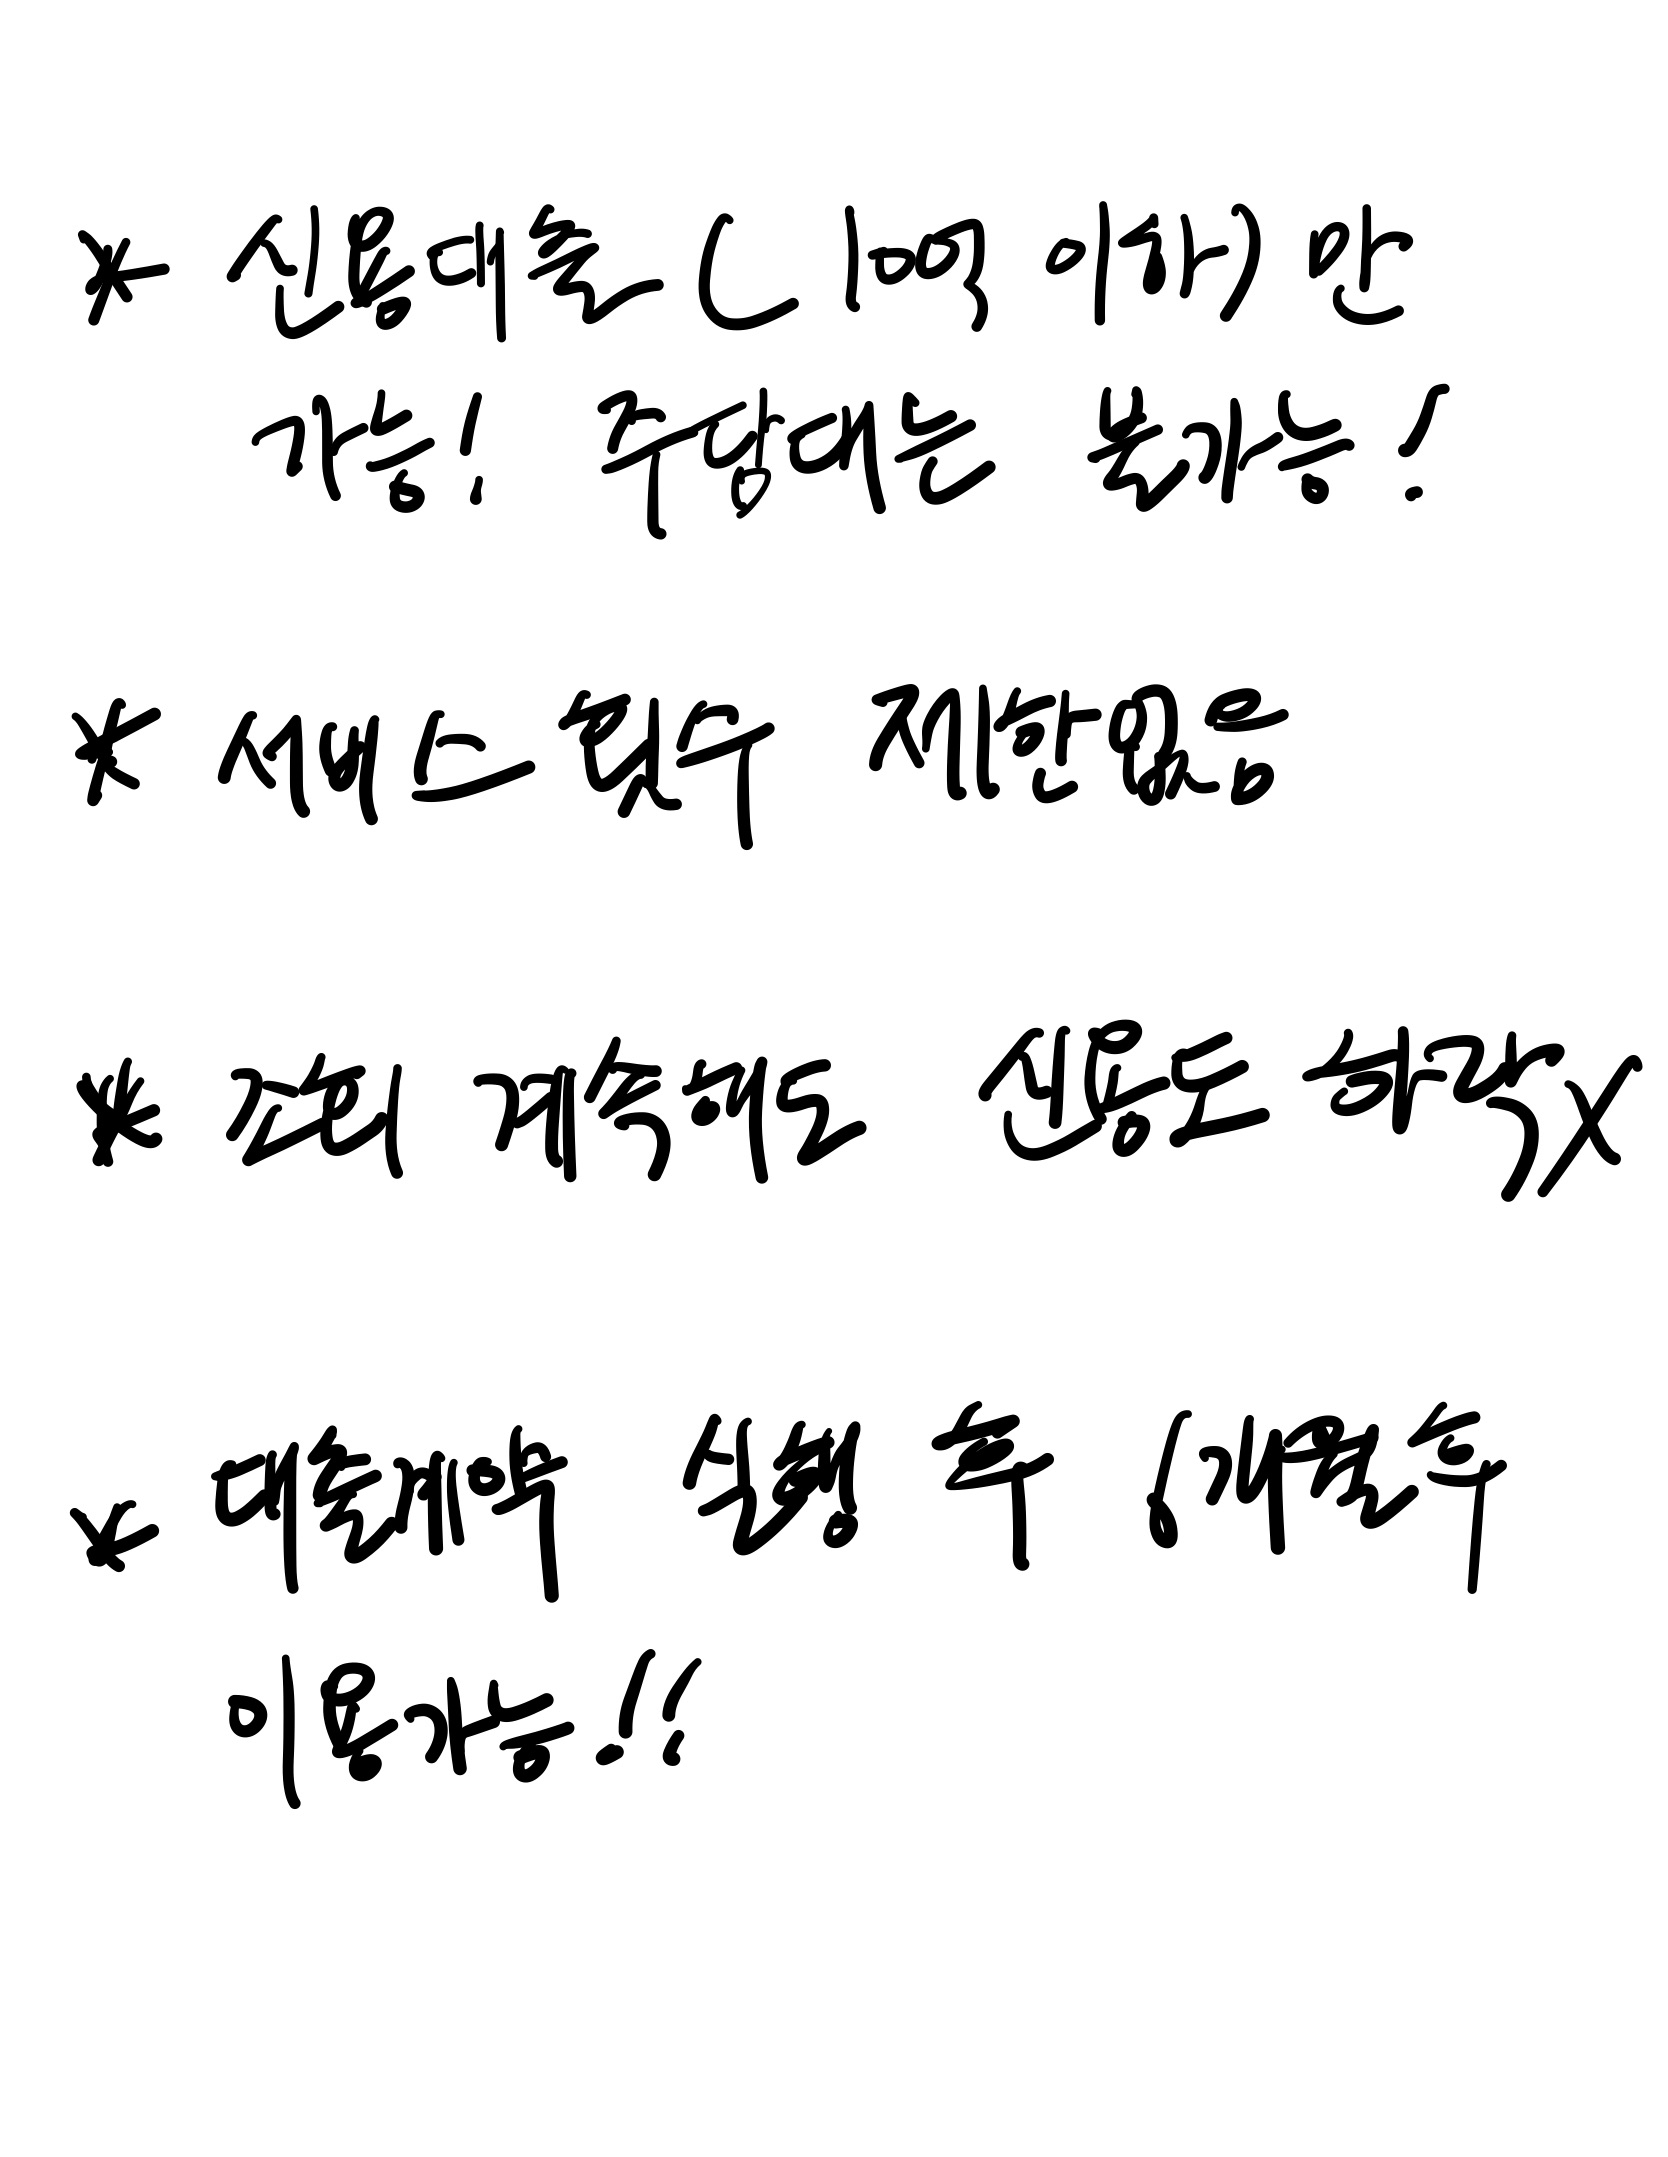 * 신용대출 ( 1억 이하) 만
가능! 주담대는 불가능!
* 서비스 횟수 제한없음
* 조회 계속해도 신용도 하락X
* 대출계약 실행 후 6개월후
이용가능!!